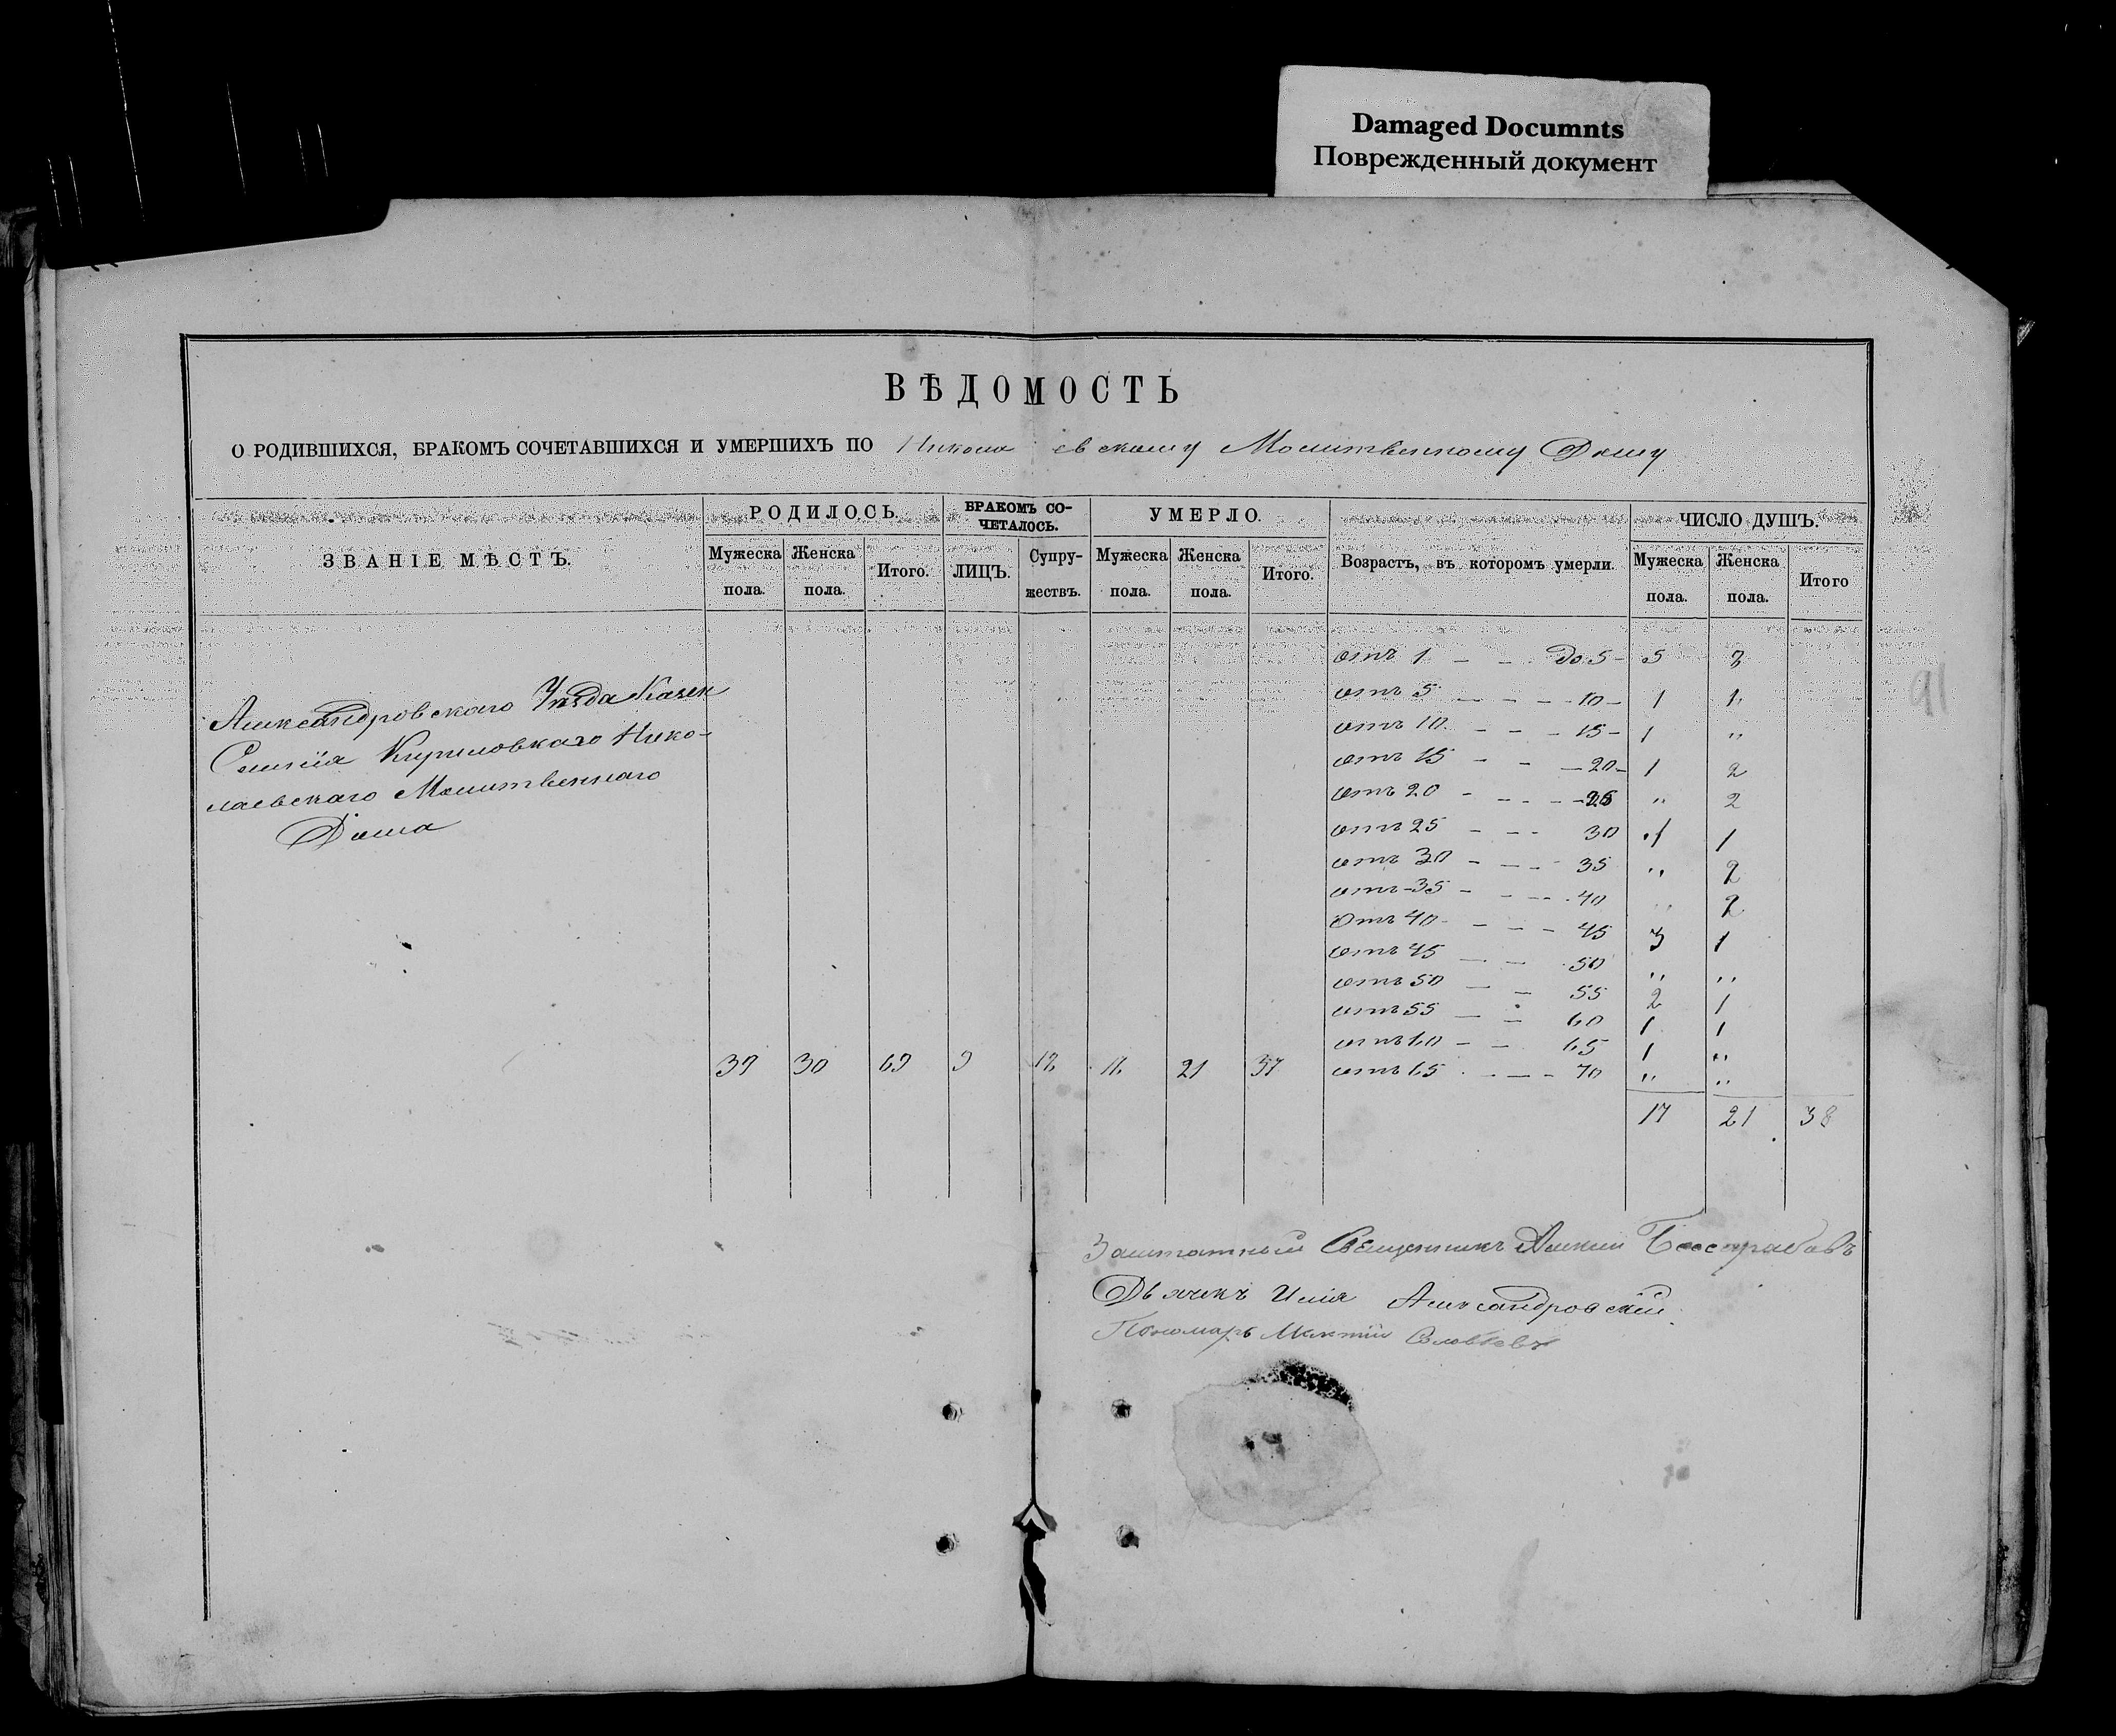 Damaged Documnts
Поврежденный документ
ВѢДОМОСТЬ
О РОДИВШИХСЯ, БРАКОМЪ СОЧЕТАВШИХСЯ И УМЕРШИХЪ ПО Николаевскому Молитвенному Дому
ЗВАНІЕ МѢСТЪ.
РОДИЛОСЬ.
БРАКОМЪ СО-
ЧЕТАЛОСЬ.
УМЕРЛО.
Возрастъ, въ которомъ умерли.
ЧИСЛО ДУШЪ.
Мужеска пола.
Женска пола.
Итого.
ЛИЦЪ.
Супру-
жествъ.
Мужеска пола.
Женска пола.
Итого.
Мужеска пола.
Женска пола.
Итого
Александровскаго Уѣзда
Кириловкаго Нико-
лаевскаго Молитвеннаго
Дома
39 30 69 9 21 37
отъ 1 — — до 5 — 5
отъ 5 — — — 10 — 1 1
отъ 10 — — — 15 — 1 „
отъ 15 — — — 20 — 1 2
отъ 20 — — — 25 „ 2
отъ 25 — — — 30 1 1
отъ 30 — — — 35 „ 2
отъ 35 — — — 40 „ 2
отъ 40 — — — 45 3 1
отъ 45 — — 50 „ „
отъ 50 — — 55 2 1
отъ 55 — — 60 1 1
отъ 60 — — 65 1 „
отъ 65 — — 70 „ „
17 21 38
91
Заштатный Священникъ
Дьячекъ Илія Александровскій
Пономарь